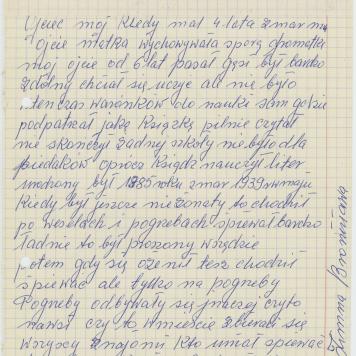 Ojciec mój kiedy miał 4 lata zmar mu
Ojciec matka wychowywała sporą gromatkę
moj ojciec od 6 lat pasał gęsi był bardzo
zdolny chciał się uczyć ale nie było
tenczas warunków do nauki sam gdzie
podpatrzał jaką książkę pilnie czytał
nie skończył żadnej szkoły nie było dla
biedaków oprócz ksiądz nauczył liter
urodzony był 1885 roku zmar 1939 w maju
Kiedy był jeszcze nieżonaty to chodził
po weselach i pogrzebach śpiewał bardzo
ładnie to był proszony wszędzie
potem gdy się ożenił tesz chodził
śpiewać ale tylko na pogrzeby
Pogrzeby odbywały się inaczej czy to
nawsi czy to w mieście zbierali się
wszyscy znajomi kto umiał śpiewać
Bronisława